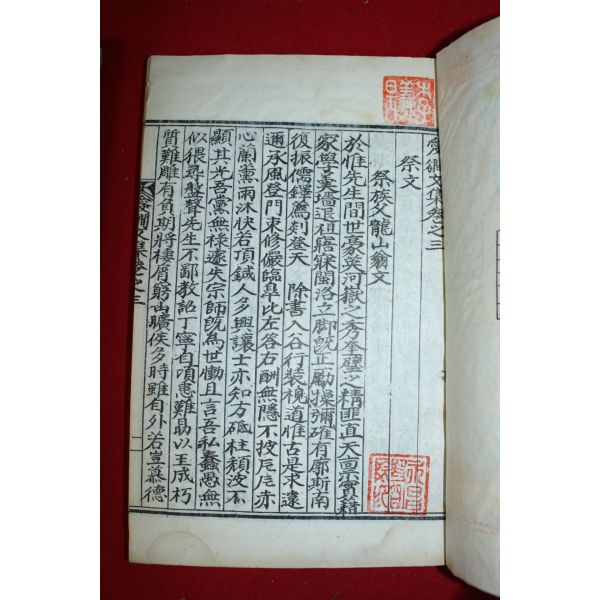 愛澗文集卷之三
祭文
祭族父龍山翁文
於惟先生間世豪英河嶽之秀奎璧之精匪直天禀實籍
家學羹墻退祖寤寐閩洛立脚旣正勵操彌確有廓斯南
復振儒鐸薦剡登天 除書入谷行裝槐道惟古是求遠
邇承風登門束修儼臨臯比左答右酬無隱不披卮卮亦
心蘭薰雨沐快若頂鍼人多興讓士亦知方砥柱頹波不
顯其光吾黨無祿遽失宗師旣為世慟且言吾私蠢愚無
似猥尋盤聲先生不鄙教詔丁寧自頃患難勗以玉成朽
質難雕有負期將棲屑窮山曠俟多時雖自外若豈慕德
澗文集卷之三
一